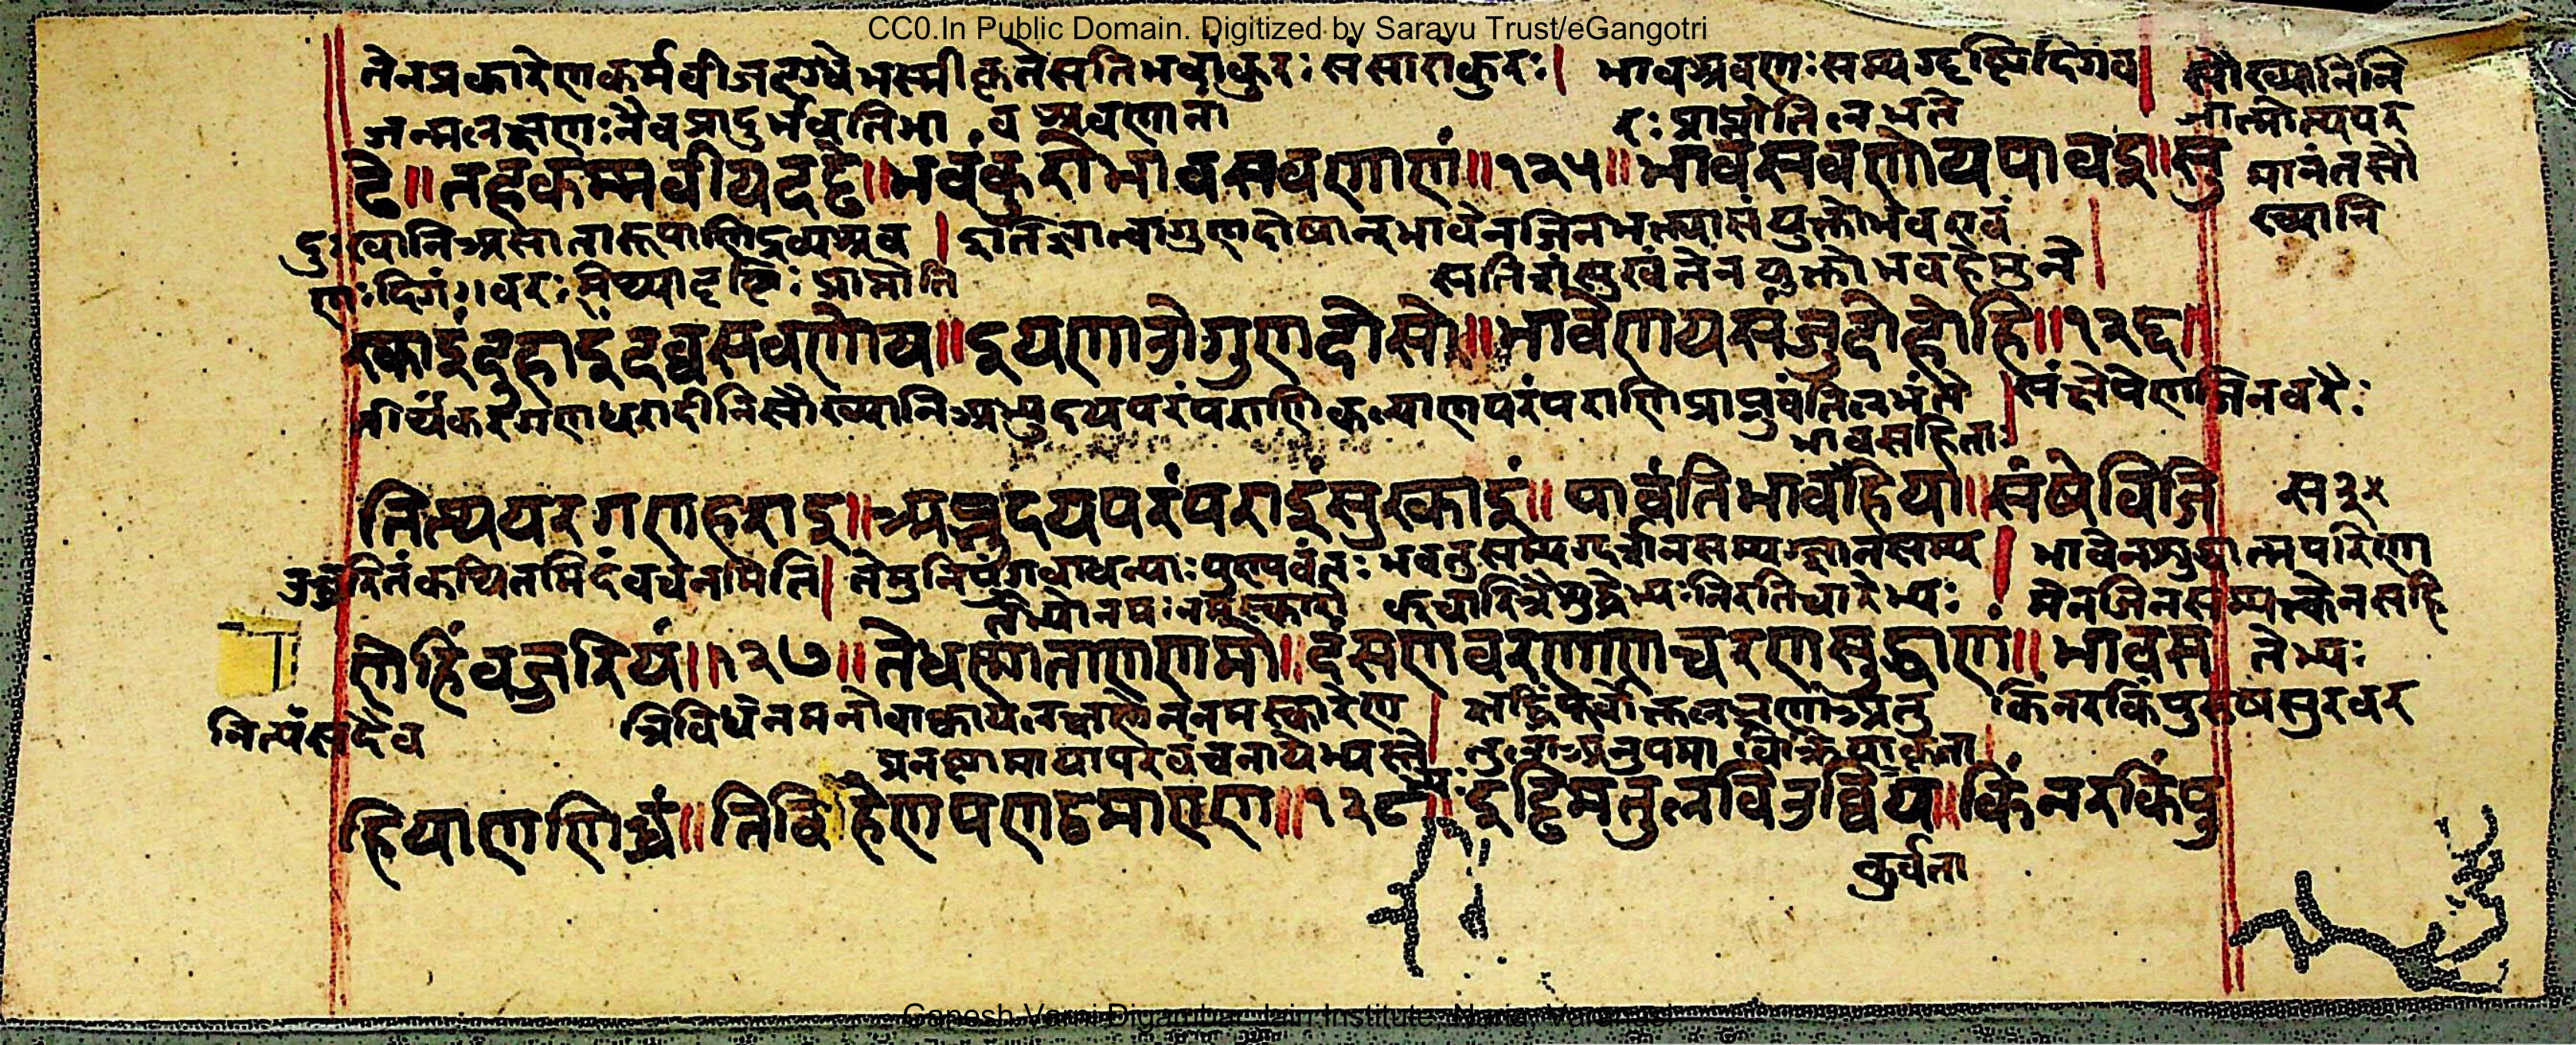 CC0.In Public Domain. Digitized by Sarayu Trust/eGangotri
तेनप्रकारेणकर्मवीजदग्धेभस्मीकृतेसतिभवांकुरः संसारांकुरः। भावश्रवणः सम्यग्दृष्टिदिगंव। सौख्यानिनि
जन्मलक्षणः नैवप्रादुर्भवतिभा व श्रवणाना रः प्राप्नोति लभते
परमानंतसौ
ख्यानि
दे॥ तहकम्मवीयदट्ढे॥ भवंकुरोभावसवणाणं॥१२५॥ भावसवणोयपावइ॥ सु
दुःखानिअसातारूपाणिद्रव्यश्रव। इतिज्ञात्वागुणदोषान्भावेनजिनभक्त्यासंयुक्तोभवएवं
णः दिगं॥वरः मिथ्यादृष्टिः प्राप्नोति सतिसुखंतेनयुक्तोभवहेमुने।
रकाइंदुहाइंदव्वसवणोय॥ इयणाउंगुणदोसो॥ भावेणयसंजुदोहोहि॥१२६॥
तीर्थकरगणधरादीनिसौख्यानिअभ्युदयपरंपराणिकल्याणपरंपराणिप्राप्नुवंतिलभंते। संक्षेपेणजिनवरैः
भावसहिताः
तित्थयरगणहराइ॥ अब्भुदयपरंपराइंसुरकाइं॥ पावंतिभावसहिया॥ संषेविजि
उच्चरितंकथितमिदंवचनमिति। तेमुनिपुंगवाधन्याः पुण्यवंतः भवतुसम्यग्दर्शनसम्यग्ज्ञानसम्य। भावेनशुद्धात्मपरिणा
तेभ्योनमः नमस्कारो क्चारित्रैशुद्धेभ्यः निरतिचारेभ्यः मेनजिनसम्यक्त्वेनसहि
णेहिंवज्जरियं॥१२७॥ तेधण्णाताणणमो॥ दंसणवरणाणचरणसुद्धाणं॥ भावस तेभ्यः
नित्यंसदैव त्रिविधेनमनोवाक्कायलक्षणेननमस्कारेण। किंनरकिंपुरुषसुरवर
हियाणणिच्चं॥ तिविहेणपणट्ठमायाणं॥१२८॥ इड्ढिमतुलविउव्विय॥ किंनरकिंपु
कुर्वता
Ganesh Varni Digambar Jain Institute, Naria, Varanasi